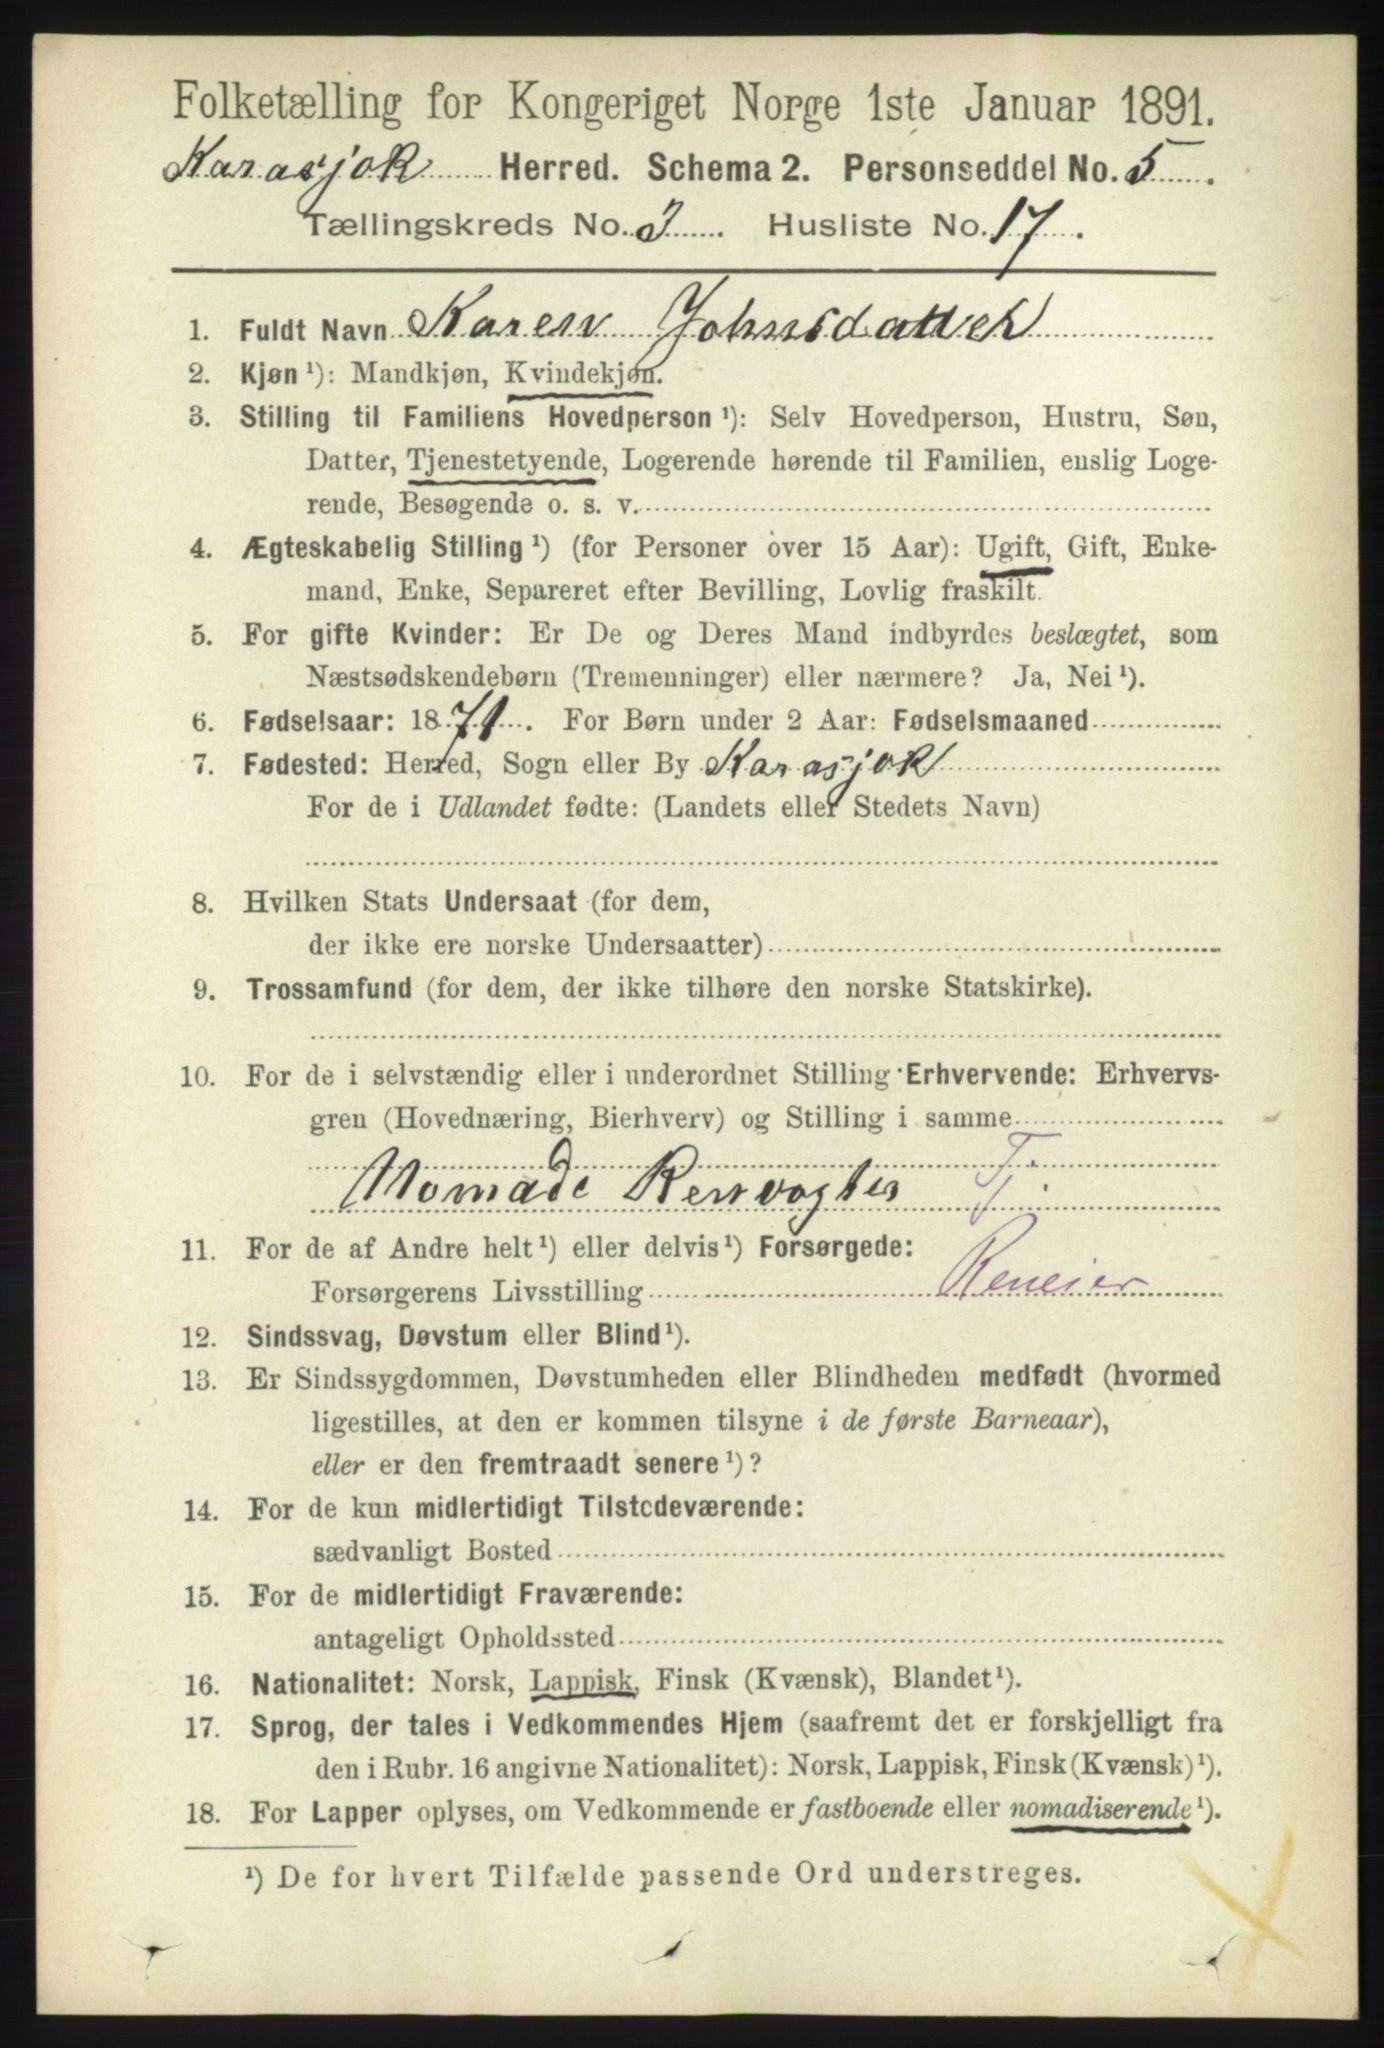 Folketælling for Kongeriget Norge 1ste Januar 1891.
Karasjok Herred. Schema 2. Personseddel No. 5.
Tællingskreds No. 3. Husliste No. 17.
1. Fuldt Navn Karen Johnsdatter
2. Kjøn ¹): Mandkjøn, Kvindekjøn.
3. Stilling til Familiens Hovedperson ¹): Selv Hovedperson, Hustru, Søn,
Datter, Tjenestetyende, Logerende hørende til Familien, enslig Loge-
rende, Besøgende o. s. v.
4. Ægteskabelig Stilling ¹) (for Personer over 15 Aar): Ugift, Gift, Enke-
mand, Enke, Separeret efter Bevilling, Lovlig fraskilt.
5. For gifte Kvinder: Er De og Deres Mand indbyrdes beslægtet, som
Næstsødskendebørn (Tremenninger) eller nærmere? Ja, Nei ¹).
6. Fødselsaar: 1871. For Børn under 2 Aar: Fødselsmaaned
7. Fødested: Herred, Sogn eller By Karasjok
For de i Udlandet fødte: (Landets eller Stedets Navn)
8. Hvilken Stats Undersaat (for dem,
der ikke ere norske Undersaatter)
9. Trossamfund (for dem, der ikke tilhøre den norske Statskirke).
10. For de i selvstændig eller i underordnet Stilling Erhvervende: Erhvervs-
gren (Hovednæring, Bierhverv) og Stilling i samme
Nomade Renvogter Tj.
11. For de af Andre helt ¹) eller delvis ¹) Forsørgede:
Forsørgerens Livsstilling Reneier
12. Sindssvag, Døvstum eller Blind ¹).
13. Er Sindssygdommen, Døvstumheden eller Blindheden medfødt (hvormed
ligestilles, at den er kommen tilsyne i de første Barneaar),
eller er den fremtraadt senere ¹)?
14. For de kun midlertidigt Tilstedeværende:
sædvanligt Bosted
15. For de midlertidigt Fraværende:
antageligt Opholdssted
16. Nationalitet: Norsk, Lappisk, Finsk (Kvænsk), Blandet ¹).
17. Sprog, der tales i Vedkommendes Hjem (saafremt det er forskjelligt fra
den i Rubr. 16 angivne Nationalitet): Norsk, Lappisk, Finsk (Kvænsk) ¹).
18. For Lapper oplyses, om Vedkommende er fastboende eller nomadiserende ¹).
¹) De for hvert Tilfælde passende Ord understreges.